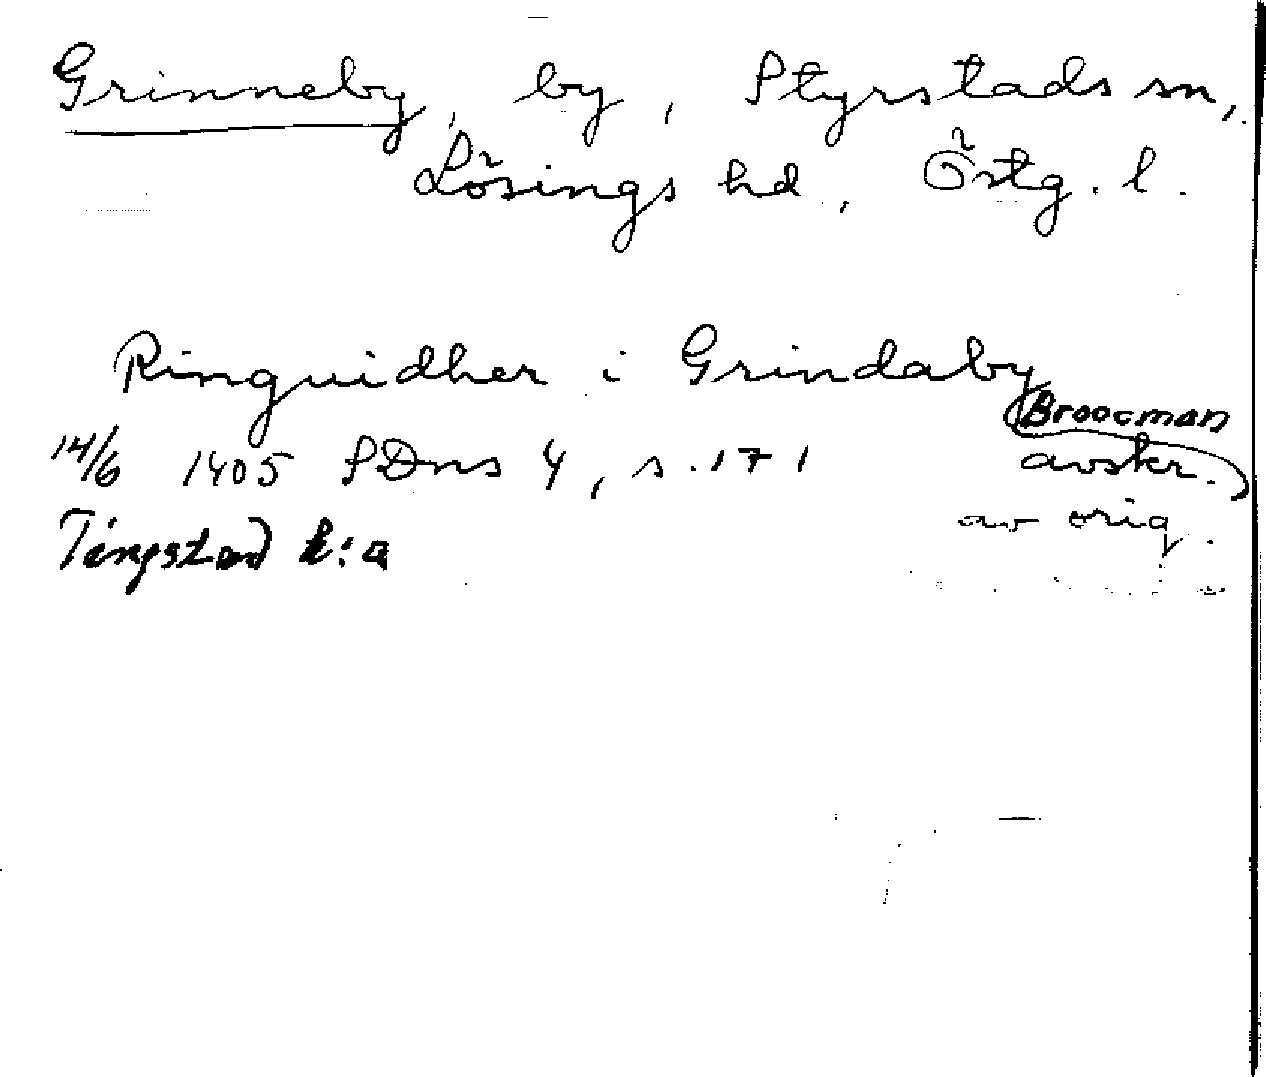 Grinneby, by, Styrstads sn,
Lösings hd, Östg. l.
Ringuidher i Grindaby
Broocman
14/6 1405 SDns 4, s. 171 avskr.
av orig.
Tingstad k:a